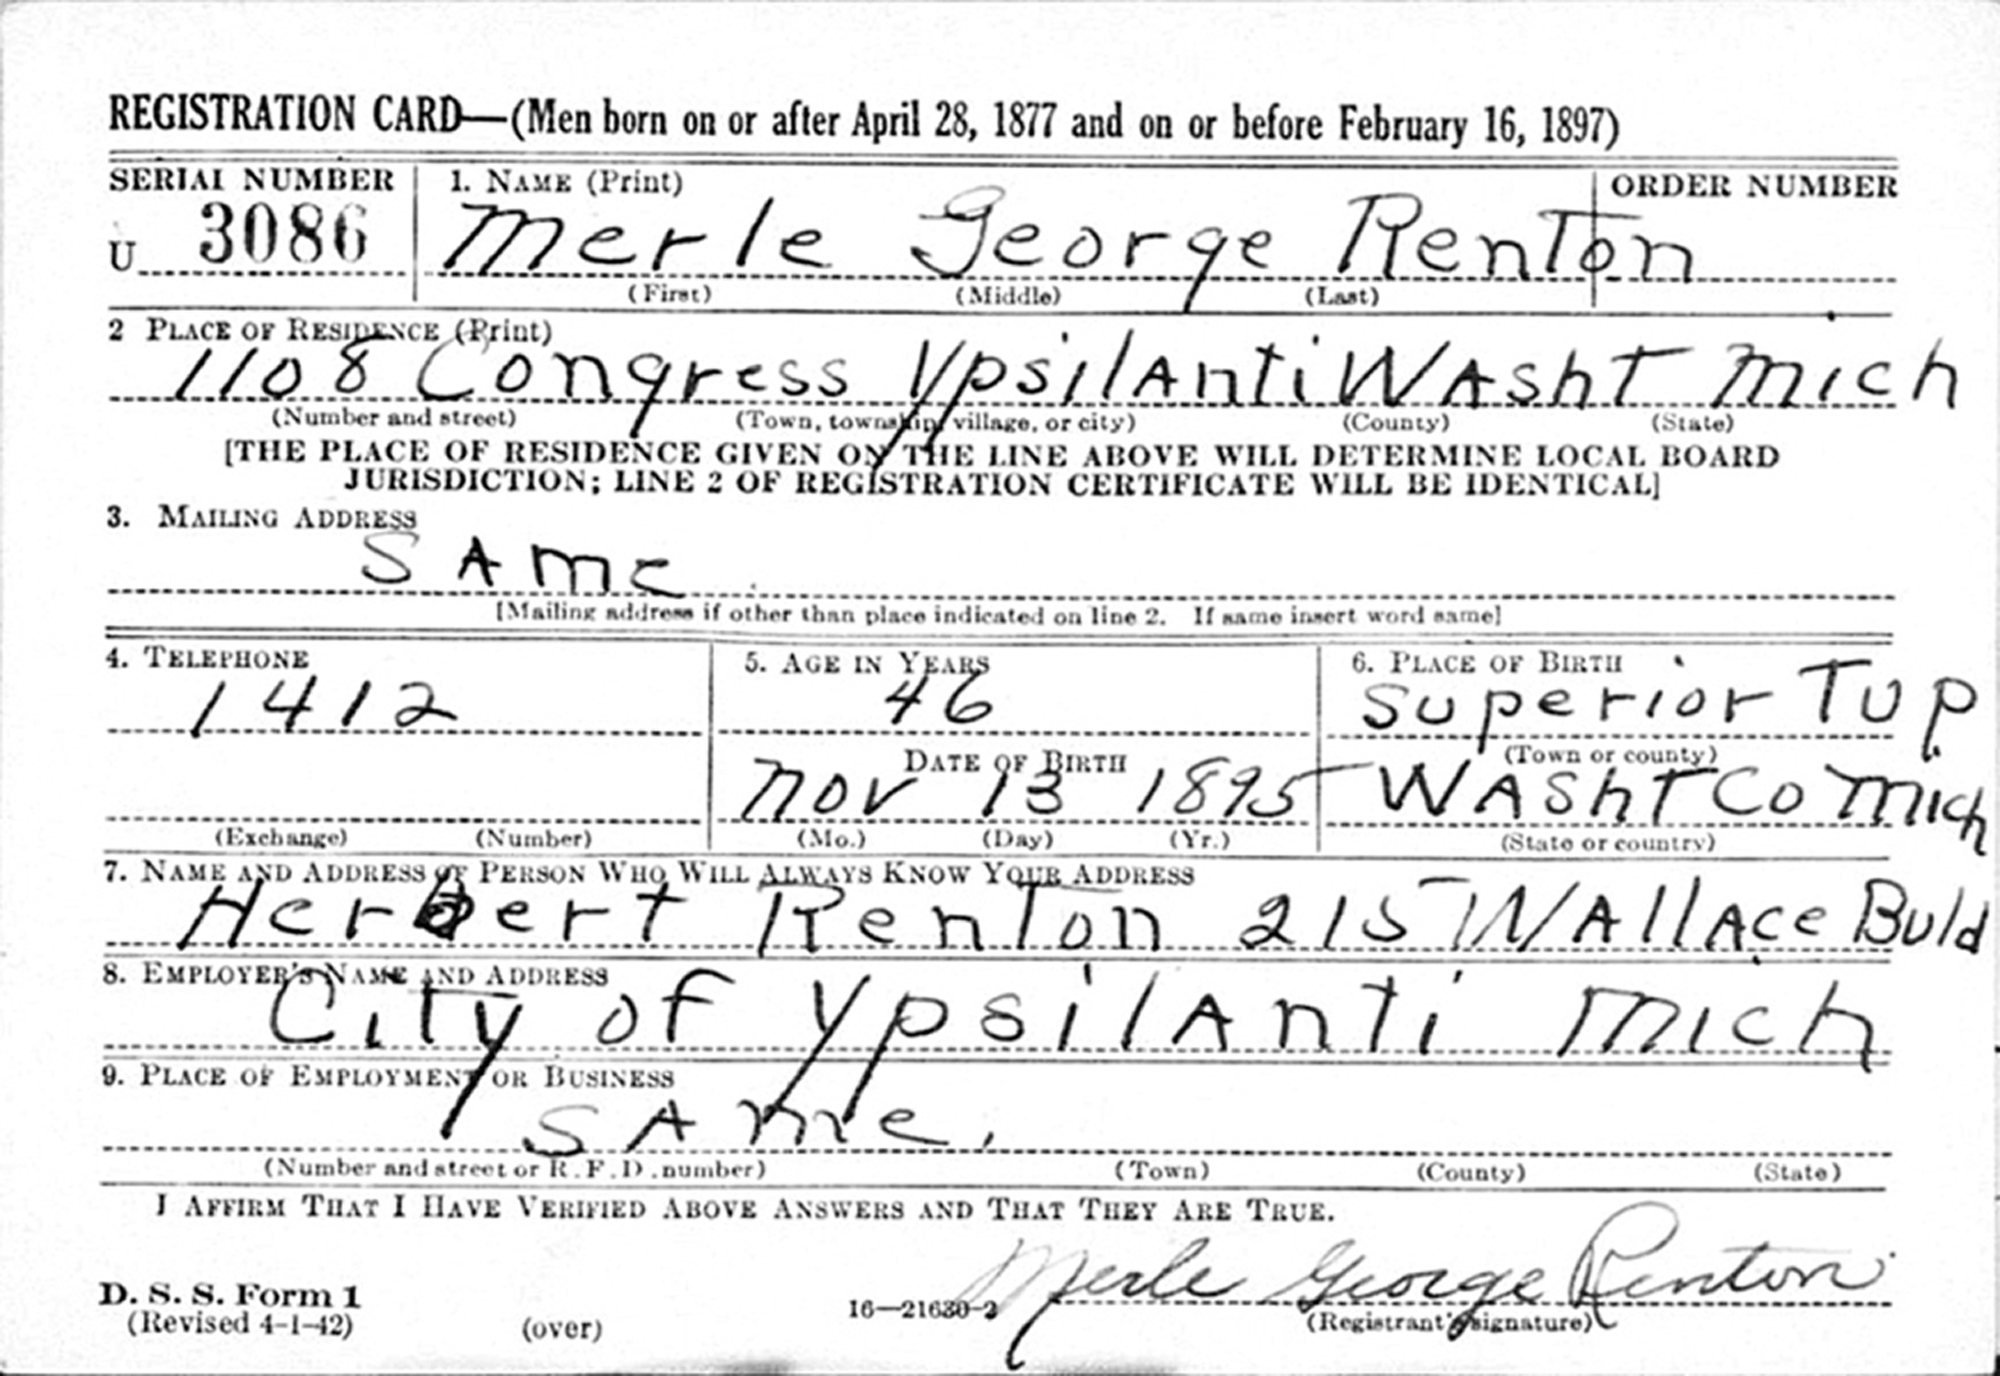 REGISTRATION CARD—(Men born on or after April 28, 1877 and on or before February 16, 1897)
SERIAL NUMBER 1. NAME (Print) ORDER NUMBER
U 3086 Merle George Renton
(First) (Middle) (Last)
2 PLACE OF RESIDENCE (Print)
1108 Congress Ypsilanti Washt Mich
(Number and street) (Town, township, village, or city) (County) (State)
[THE PLACE OF RESIDENCE GIVEN ON THE LINE ABOVE WILL DETERMINE LOCAL BOARD
JURISDICTION; LINE 2 OF REGISTRATION CERTIFICATE WILL BE IDENTICAL]
3. MAILING ADDRESS
Same
[Mailing address if other than place indicated on line 2. If same insert word same]
4. TELEPHONE 5. AGE IN YEARS 6. PLACE OF BIRTH
1412 46 Superior Tup
DATE OF BIRTH (Town or county)
Nov 13 1895 Washt Co Mich
(Exchange) (Number) (Mo.) (Day) (Yr.) (State or country)
7. NAME AND ADDRESS OF PERSON WHO WILL ALWAYS KNOW YOUR ADDRESS
Herbert Renton 215 Wallace Buld
8. EMPLOYER'S NAME AND ADDRESS
City of Ypsilanti Mich
9. PLACE OF EMPLOYMENT OR BUSINESS
Same.
(Number and street or R. F. D. number) (Town) (County) (State)
I AFFIRM THAT I HAVE VERIFIED ABOVE ANSWERS AND THAT THEY ARE TRUE.
Merle George Renton
D. S. S. Form 1
(Revised 4-1-42) (over) 16—21630-2 (Registrant's signature)